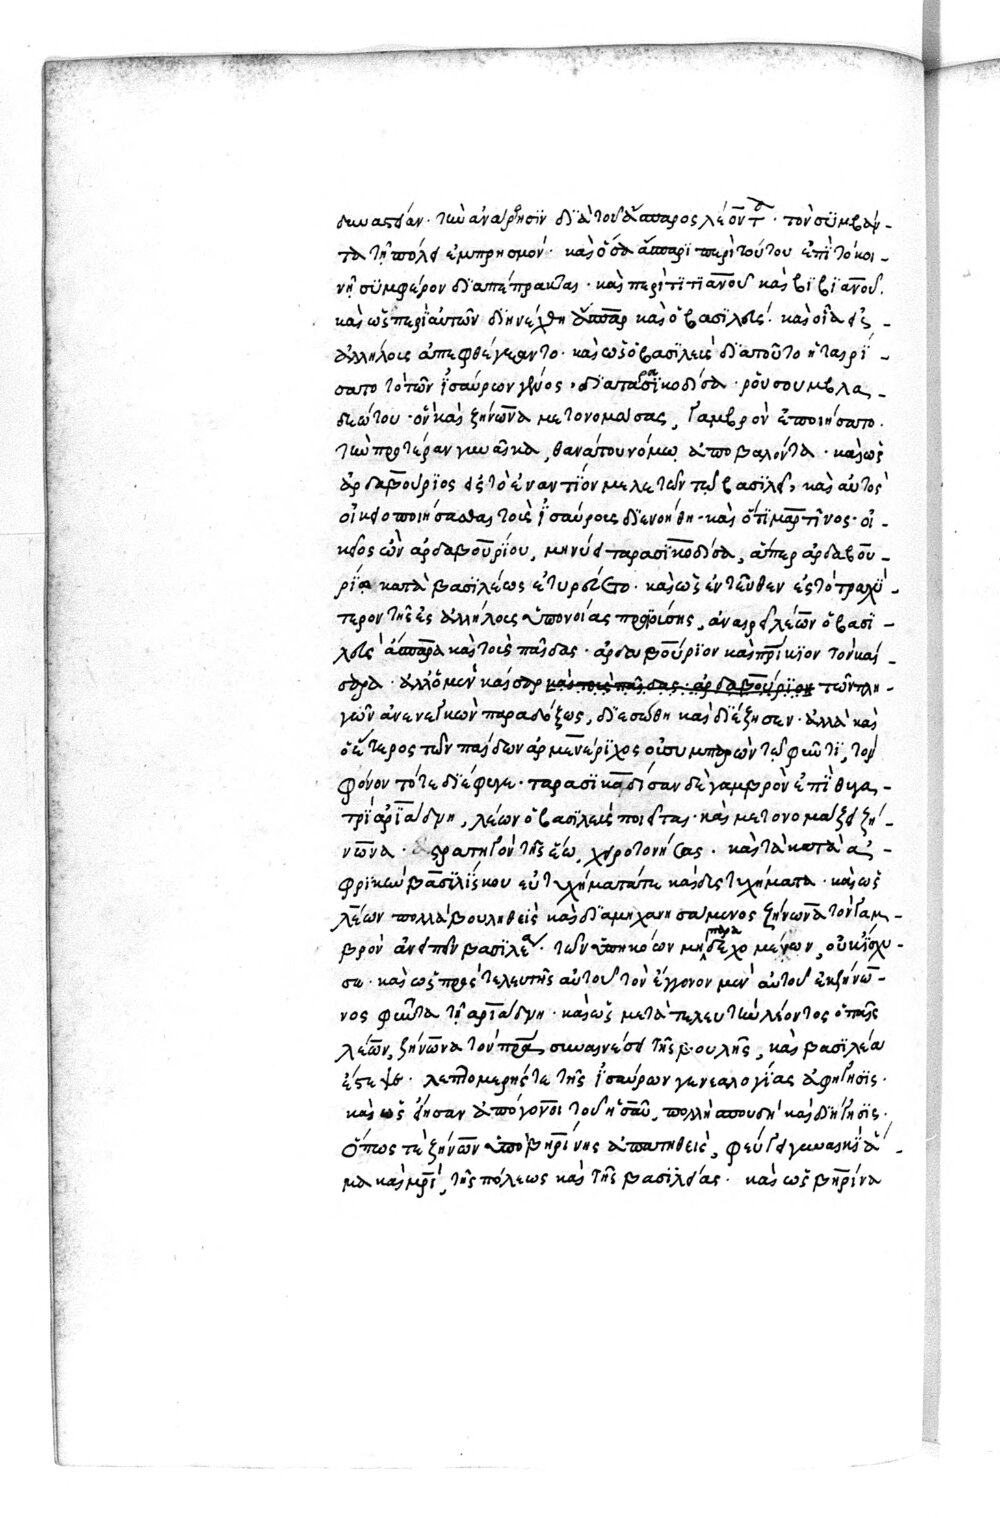 δυναστείαν· τὴν ἀνάρρησιν διὰ τοῦ ἄσπαρος λέοντος· τὸν συμβάν-
τα τῇ πόλει ἐμπρησμόν· καὶ ὅσα ἄσπαρι περὶ τούτου ἐπὶ τὸ κοι-
νῇ συμφέρον διαπέπρακται· καὶ περὶ τιτιανοῦ καὶ βιβιανοῦ.
καὶ ὡς περὶ αὐτῶν διηνέχθη ἄσπαρ καὶ ὁ βασιλεύς· καὶ οἷα εἰς
ἀλλήλους ἀπεφθέγξαντο· καὶ ὡς ὁ βασιλεὺς διὰ τοῦτο ἡταιρί-
σατο τὸ τῶν ἰσαύρων γένος, διὰ ταρασικοδίσα· ρουσουμβλα
δεώτου· ὃν καὶ ζήνωνα μετονομάσας, γαμβρὸν ἐποιήσατο.
τὴν προτέραν γυναῖκα, θανάτου νόμῳ ἀποβαλόντα· καὶ ὡς
ἀρδαβούριος εἰς τὸ ἐναντίον μελετῶν τῷ βασιλεῖ, καὶ αὐτὸς
οἰκειοποιήσασθαι τοὺς ἰσαύρους διενοήθη· καὶ ὅτι μαρτῖνος· οἰ-
κεῖος ὢν ἀρδαβουρίου, μηνύει ταρασικοδίσα, ἅπερ ἀρδαβου-
ρίῳ κατὰ βασιλέως ἐτυρεύετο· καὶ ὡς ἐντεῦθεν ἐς τὸ τραχύ-
τερον τῆς ἐς ἀλλήλους ὑπονοίας προϊούσης, ἀναιρεῖ λέων ὁ βασι-
λεὺς ἄσπαρα καὶ τοὺς παῖδας· ἀρδαβούριον καὶ πατρίκιον τὸν καί-
σαρα· ἀλλ' ὁ μὲν καῖσαρ καὶ τοὺς παῖδας· ἀρδαβούριον τῶν πλη-
γῶν ἀνενεγκὼν παραδόξως, διεσώθη καὶ διέζησεν· ἀλλὰ καὶ
ὁ ἕτερος τῶν παίδων ἀρμενέριχος οὐ συμπαρὼν τῷ φύντι, τὸν
φόνον τότε διέφυγε· ταρασικοδίσαν δὲ γαμβρὸν ἐπὶ θυγα-
τρὶ ἀριάδνῃ, λέων ὁ βασιλεὺς ποιεῖται· καὶ μετονομάζει ζή-
νωνα· στρατηγὸν τῆς ἕω, χειροτονήσας. καὶ τὰ κατὰ ἀ-
φρικὴν βασιλίσκου εὐτυχήματά τε καὶ δυστυχήματα· καὶ ὡς
λέων πολλὰ βουληθεὶς καὶ διαμηχανησάμενος ζήνωνα τὸν γαμ-
βρὸν ἀνειπεῖν βασιλέα, τῶν ὑπηκόων μὴ παραδεχομένων, οὐκ ἴσχυ-
σε. καὶ ὡς πρὸς τελευτῆς αὐτοῦ τὸν ἔγγονον μὲν αὐτοῦ ἐκ ζήνω-
νος φύντα τῇ ἀριάδνῃ· καὶ ὡς μετὰ τελευτὴν λέοντος ὁ παῖς
λέων, ζήνωνα τὸν πατέρα, συναινέσει τῆς βουλῆς, καὶ βασιλέα
ἔστεψε. λεπτομερής τε τῆς ἰσαύρων γενεαλογίας ἀφήγησις.
καὶ ὡς εἴησαν ἀπόγονοι τοῦ ἡσαῦ, πολλὴ σπουδὴ καὶ διήγησις.
ὅπως τε ζήνων ὑπὸ βηρίνης ἀπατηθεὶς, φεύγει γυναικὶ ἅ-
μα καὶ μητρὶ, τῆς πόλεως καὶ τῆς βασιλείας· καὶ ὡς βηρίνα